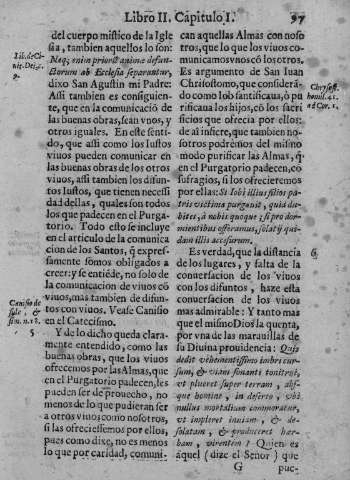 Libro II. Capitulo I. 97
del cuerpo mistico de la Igle
sia, tambien aquellos lo son:
Neq; enim piorũ animæ defun-
ctorum ab Ecclesia separantur,
dixo San Agustin mi Padre:
Assi tambien es consiguien-
te, que en la comunicació de
las buenas obras, sean vnos, y
otros iguales. En este senti-
do, que assi como los Iustos
viuos pueden comunicar en
las buenas obras de los otros
viuos, assi tambien los difun-
tos Iustos, que tienen necessi
dad dellas, quales son todos
los que padecen en el Purga-
torio. Todo esto se incluye
en el articulo de la comunica
cion de los Santos, q̃ expres-
samente somos obligados a
creer: y se entiéde, no solo de
la comunicacion de viuos có
viuos, mas tambien de difun-
tos con viuos. Vease Canisio
en el Catecismo.
Y de lo dicho queda clara-
mente entendido, como las
buenas obras, que los viuos
ofrecemos por las Almas, que
en el Purgatorio padecen, les
pueden ser de prouecho, no
menos de lo que pudieran ser
a otros viuos como nosotros,
si las ofreciessemos por ellos,
pues como dixe, no es menos
lo que por caridad, comuni-
lib. de Ci-
uit. Dei, c.
9.
Canisio de
5
can aquellas Almas con noso
tros, que lo que los viuos co
municamos vnos có los otros.
Es argumento de San Iuan
Chrisostomo, que considerá-
do como Iob santificaua, ó pu
rificaua los hijos, có los sacri
ficios que ofrecia por ellos:
de aì infiere, que tambien no-
sotros podrèmos del mismo
modo purificar las Almas, q̃
en el Purgatorio padecen, có
sufragios, si los ofrecieremos
por ellas: Si Iobi illius filios pa-
tris victima purgauit, quid du-
bites, à nobis quoque, si pro dor-
mientibus offeramus, solatij qui-
dam illis accessurum.
Es verdad, que la distancia
de los lugares, y falta de la
conuersacion de los viuos
con los difuntos, haze esta
conuersacion de los viuos
mas admirable: Y tanto mas
que el mismo Dios la quenta,
por vna de las marauillas de
su Diuina prouidencia: Quis
dedit vehementissimo imbri cur-
sum, & viam sonanti tonitrui,
vt plueret super terram, abs-
que homine, in deserto, vbi
nullus mortalium commoratur,
vt impleret inuiam, & de-
solatam, & produceret her-
bam, virentem? Quien es
aquel (dize el Señor) que
Chrysost.
homil. 41.
ad Cor. 1.
6
G pue-